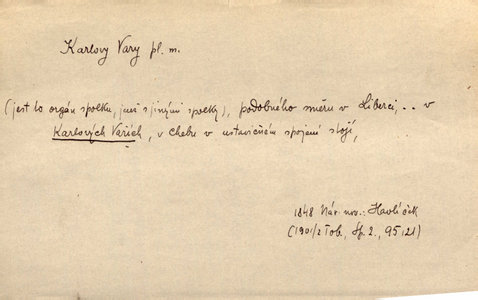 Karlovy Vary pl. m.
(jest to orgán spolku, jenž s jinými spolky), podobného směru v Liberci, .. v
Karlových Vařích, v Chebu v ustavičném spojení stojí,
1848 Nár. nov.: Havlíček
(1901/2 Tob., Sp. 2., 95,21)